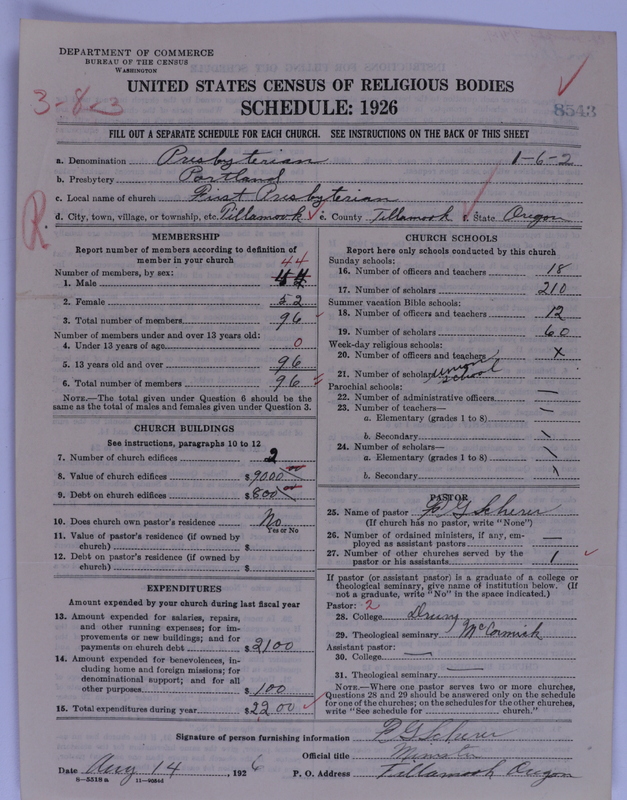 DEPARTMENT OF COMMERCE
BUREAU OF THE CENSUS
WASHINGTON
UNITED STATES CENSUS OF RELIGIOUS BODIES
SCHEDULE: 1926
3-8-3
8543
FILL OUT A SEPARATE SCHEDULE FOR EACH CHURCH. SEE INSTRUCTIONS ON THE BACK OF THIS SHEET
a. Denomination Presbyterian 1-6-2
b. Presbytery Portland
c. Local name of church First Presbyterian
d. City, town, village, or township, etc. Tillamook e. County Tillamook f. State Oregon
R
MEMBERSHIP
Report number of members according to definition of
member in your church
44
Number of members, by sex:
1. Male
2. Female 52
3. Total number of members 96
Number of members under and over 13 years old:
4. Under 13 years of age 0
5. 13 years old and over 96
6. Total number of members 96
NOTE.—The total given under Question 6 should be the
same as the total of males and females given under Question 3.
CHURCH BUILDINGS
See instructions, paragraphs 10 to 12
7. Number of church edifices 2
8. Value of church edifices $9000 00
9. Debt on church edifices $800 00
10. Does church own pastor's residence No
Yes or No
11. Value of pastor's residence (if owned by
church) $
12. Debt on pastor's residence (if owned by
church) $
EXPENDITURES
Amount expended by your church during last fiscal year
13. Amount expended for salaries, repairs,
and other running expenses; for im-
provements or new buildings; and for
payments on church debt $2100
14. Amount expended for benevolences, in-
cluding home and foreign missions; for
denominational support; and for all
other purposes $100
15. Total expenditures during year $2200
CHURCH SCHOOLS
Report here only schools conducted by this church
Sunday schools:
16. Number of officers and teachers 18
17. Number of scholars 210
Summer vacation Bible schools:
18. Number of officers and teachers 12
19. Number of scholars 60
Week-day religious schools:
20. Number of officers and teachers x
21. Number of scholars union school
Parochial schools:
22. Number of administrative officers —
23. Number of teachers—
a. Elementary (grades 1 to 8)
b. Secondary
24. Number of scholars—
a. Elementary (grades 1 to 8)
b. Secondary
PASTOR
25. Name of pastor G Scherer
(If church has no pastor, write "None")
26. Number of ordained ministers, if any, em-
ployed as assistant pastors —
27. Number of other churches served by the
pastor or his assistants 1
If pastor (or assistant pastor) is a graduate of a college or
theological seminary, give name of institution below. (If
not a graduate, write "No" in the space indicated.)
Pastor: 2
28. College Drury
29. Theological seminary McCormick
Assistant pastor:
30. College —
31. Theological seminary —
NOTE.—Where one pastor serves two or more churches,
Questions 28 and 29 should be answered only on the schedule
for one of the churches; on the schedules for the other churches,
write "See schedule for church."
Signature of person furnishing information G Scherer
Official title Minister
Date Aug 14, 1926 P. O. Address Tillamook Oregon
8—5518a